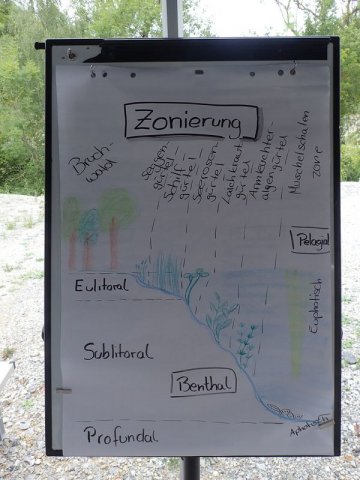 Zonierung
Bruch-
wald
Seggen-
gürtel
Schilf-
gürtel
Seerosen-
gürtel
Laichkraut-
gürtel
Armleuchter-
algengürtel
Muschelschalen
zone
Pelagial
Eulitoral
Euphotisch
Sublitoral
Benthal
Aphotisch
Profundal